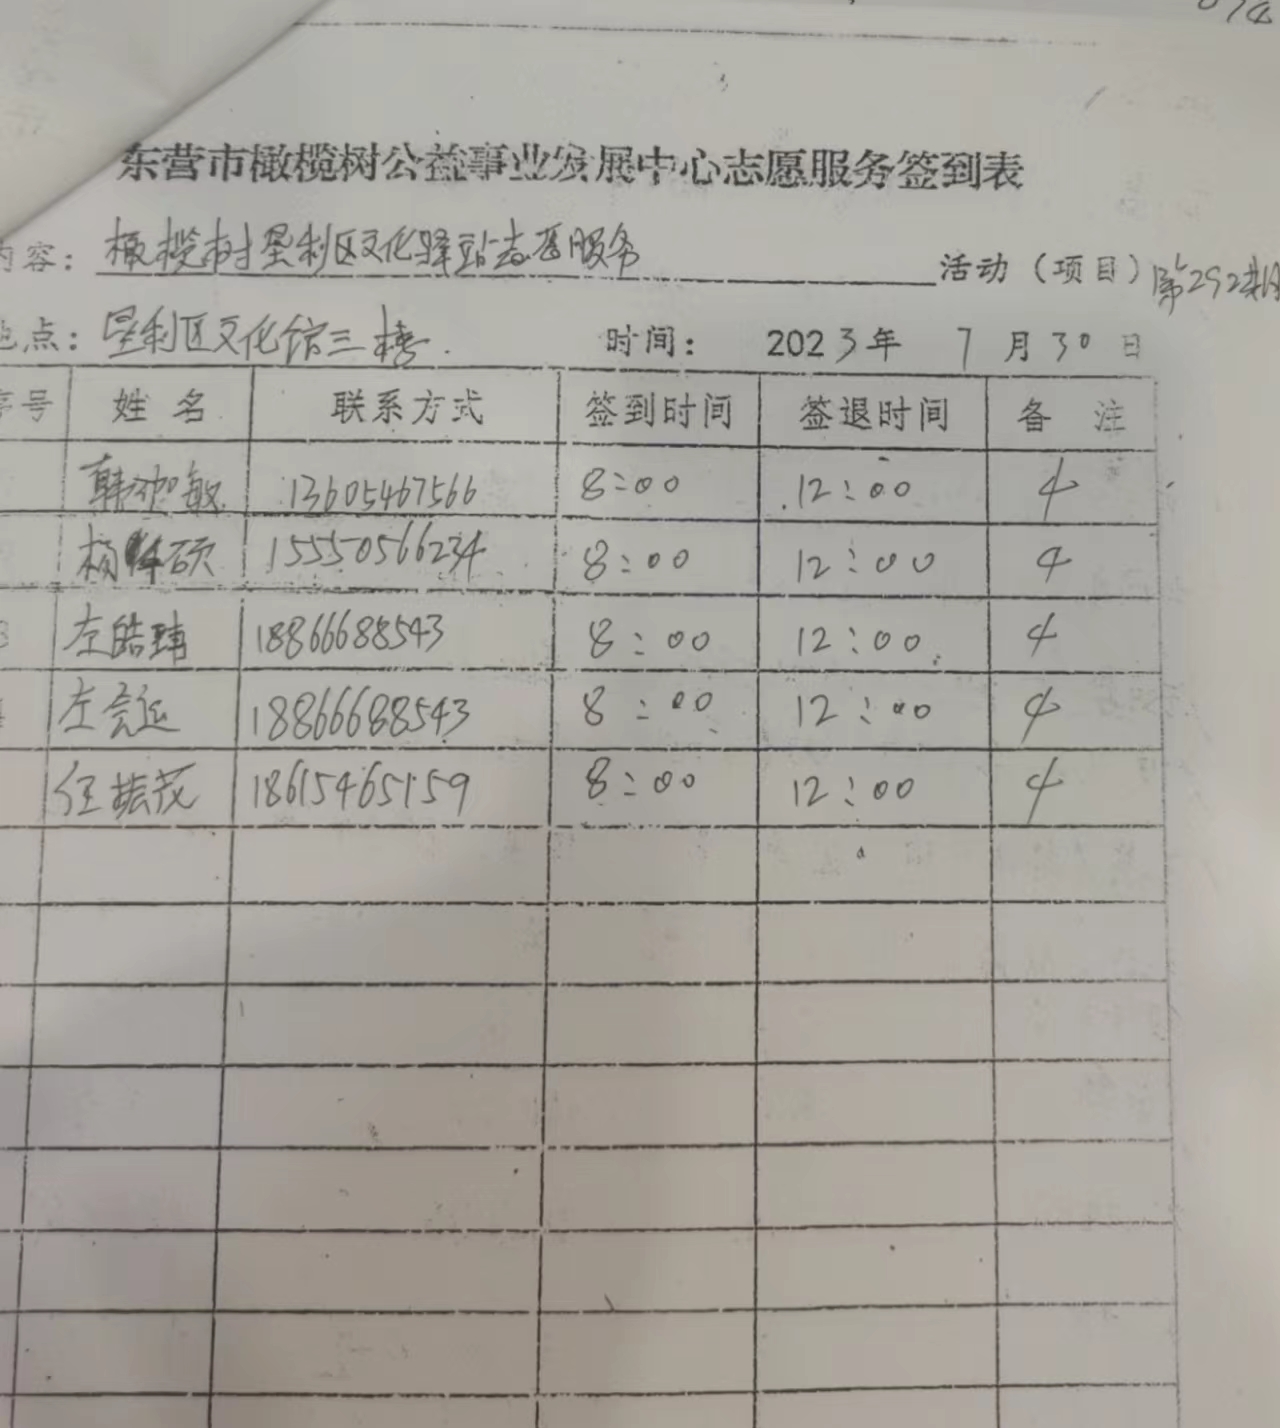 东营市橄榄树公益事业发展中心志愿服务签到表
内容：橄榄树垦利区文化驿站志愿服务 活动（项目）第292期
地点：垦利区文化馆三楼 时间： 2023年 7月30日
序号 姓名 联系方式 签到时间 签退时间 备注
韩 敏 13605467566 8:00 12:00 4
杨 硕 15550566234 8:00 12:00 4
3 左皓玮 18866688543 8:00 12:00 4
4 左 18866688543 8:00 12:00 4
任振茂 18615465159 8:00 12:00 4